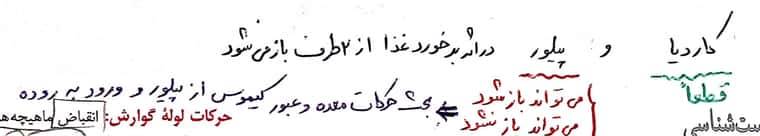 کاردیا و پیلور در اثر برخورد غذا از ۲ طرف باز می شود
قطعاً
می تواند باز شود
می تواند باز نشود
بحث حرکات معده و عبور کیموس از پیلور و ورود به روده
حرکات لولهٔ گوارش: انقباض ماهیچه‌ها
ست‌شناسی